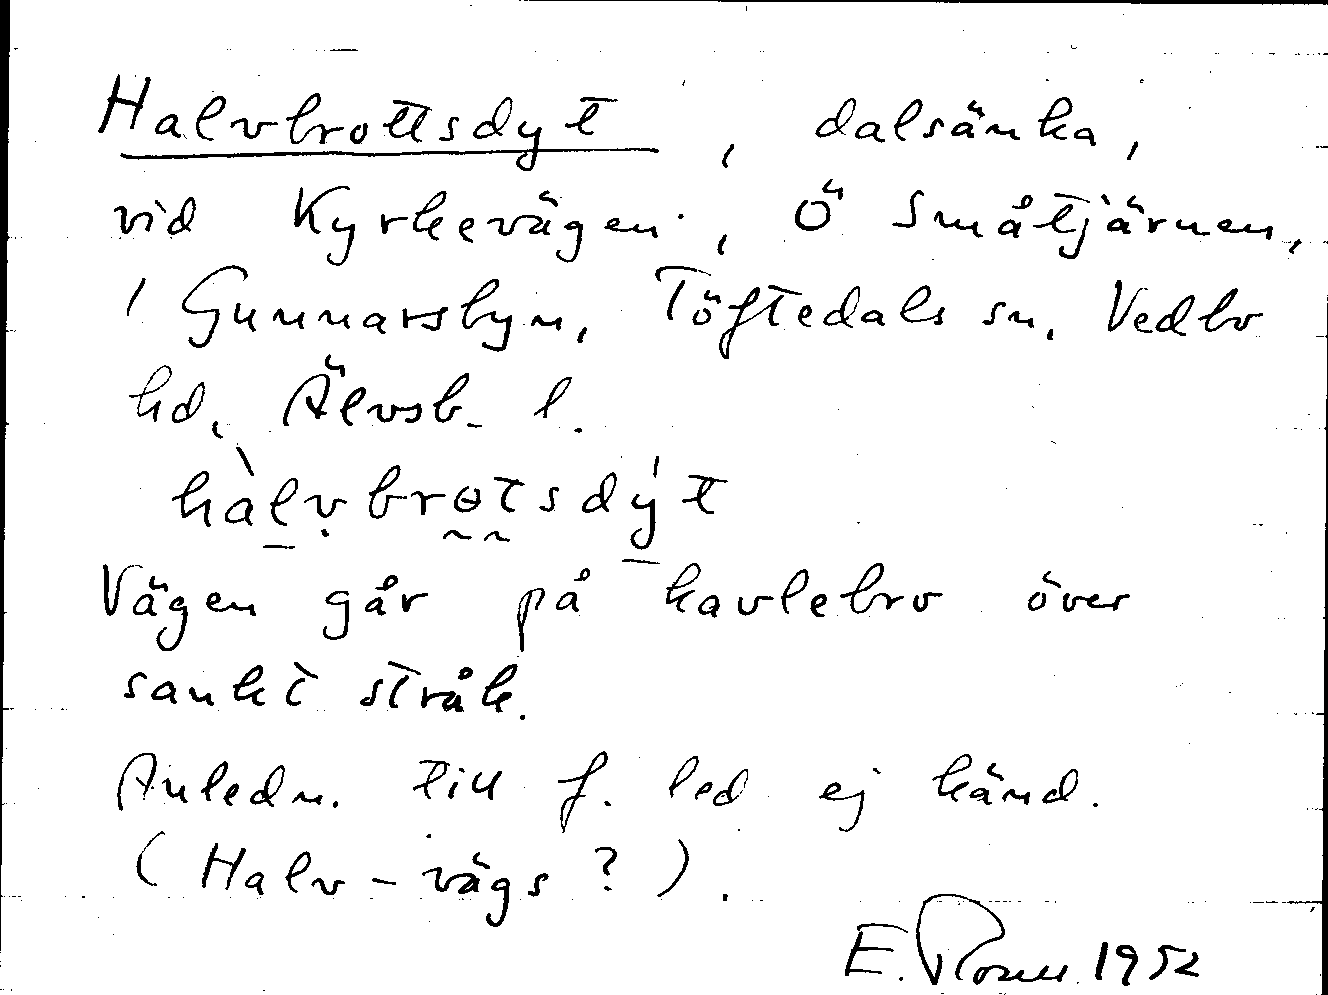 Halvbrottsdyt, dalsänka,
vid Kyrkevägen, Ö Småtjärnen,
i Gunnarsbyn, Töftedals sn, Vedbo
hd, Älvsb. l.
hàlvbrɵtsdýt
Vägen går på kavlebro över
sankt stråk.
Anledn. till f. led ej känd.
(Halv-vägs?).
E. 1952